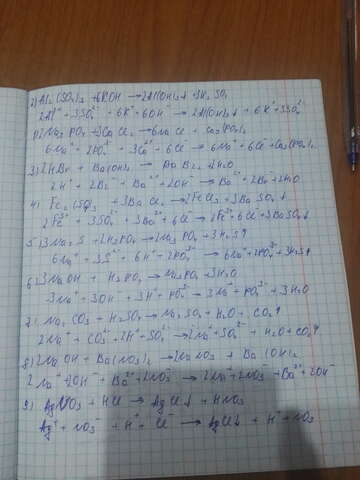 2) Al₂(SO₄)₃ + 6KOH → 2Al(OH)₃↓ + 3K₂SO₄
2Al³⁺ + 3SO₄²⁻ + 6K⁺ + 6OH⁻ → 2Al(OH)₃↓ + 6K⁺ + 3SO₄²⁻
2Na₃PO₄ + 3CaCl₂ → 6NaCl + Ca₃(PO₄)₂
6Na⁺ + 2PO₄³⁻ + 3Ca²⁺ + 6Cl⁻ → 6Na⁺ + 6Cl⁻ + Ca₃(PO₄)₂
3) 2HBr + Ba(OH)₂ → BaBr₂ + 2H₂O
2H⁺ + 2Br⁻ + Ba²⁺ + 2OH⁻ → Ba²⁺ + 2Br⁻ + 2H₂O
4) Fe₂(SO₄)₃ + 3BaCl₂ → 2FeCl₃ + 3BaSO₄↓
2Fe³⁺ + 3SO₄²⁻ + 3Ba²⁺ + 6Cl⁻ → 2Fe³⁺ + 6Cl⁻ + 3BaSO₄↓
5) 3Na₂S + 2H₃PO₄ → 2Na₃PO₄ + 3H₂S↑
6Na⁺ + 3S²⁻ + 6H⁺ + 2PO₄³⁻ → 6Na⁺ + 2PO₄³⁻ + 3H₂S↑
6) 3NaOH + H₃PO₄ → Na₃PO₄ + 3H₂O
3Na⁺ + 3OH⁻ + 3H⁺ + PO₄³⁻ → 3Na⁺ + PO₄³⁻ + 3H₂O
7) Na₂CO₃ + H₂SO₄ → Na₂SO₄ + H₂O + CO₂↑
2Na⁺ + CO₃²⁻ + 2H⁺ + SO₄²⁻ → 2Na⁺ + SO₄²⁻ + H₂O + CO₂↑
8) 2NaOH + Ba(NO₃)₂ → 2NaNO₃ + Ba(OH)₂
2Na⁺ + 2OH⁻ + Ba²⁺ + 2NO₃⁻ → 2Na⁺ + 2NO₃⁻ + Ba²⁺ + 2OH⁻
9) AgNO₃ + HCl → AgCl↓ + HNO₃
Ag⁺ + NO₃⁻ + H⁺ + Cl⁻ → AgCl↓ + H⁺ + NO₃